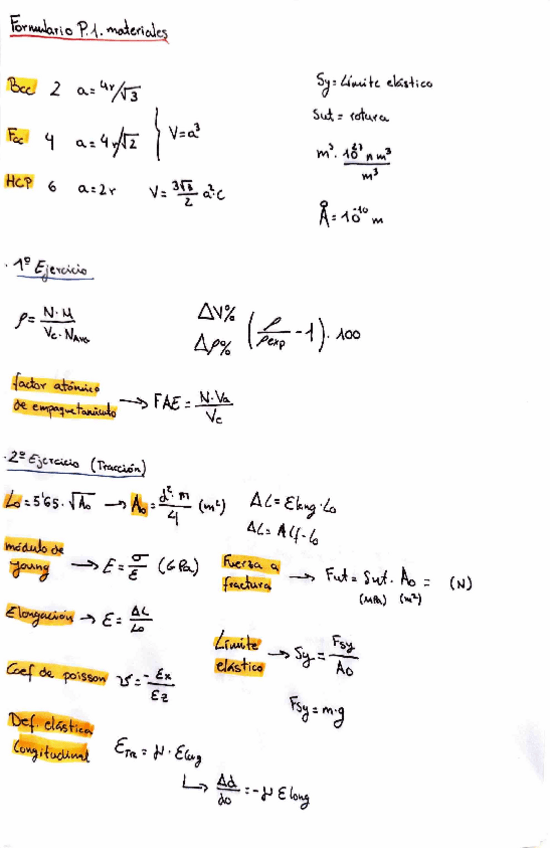 Formulario P.1. materiales
Bcc 2 a = 4r/√3
Fcc 4 a = 4r/√2 } V = a³
HCP 6 a = 2r V = 3√3/2 a²·c
Sy = Límite elástico
Sut = rotura
m³ · 10²⁷ nm³/m³
Å = 10⁻¹⁰ m
· 1º Ejercicio
ρ = N·M / Vc·N_Avo
ΔV%
Δρ% (ρ/ρexp - 1) · 100
factor atómico
de empaquetamiento → FAE = N·Va / Vc
· 2º Ejercicio (Tracción)
Lo = 5'65 · √Ao → Ao = d²·π/4 (m²) ΔL = Elong · Lo
ΔL = Δlf - lo
módulo de
young → E = σ/ε (GPa)
Fuerza a
fractura → Fut = Sut · Ao = (N)
(MPa) (m²)
Elongación → ε = ΔL/Lo
Límite
elástico → Sy = Fsy/Ao
Coef de poisson ν = -εx/εz
Fsy = m·g
Def. elástica
Longitudinal εTra = μ · εlong
↳ Δd/do = -μ εlong